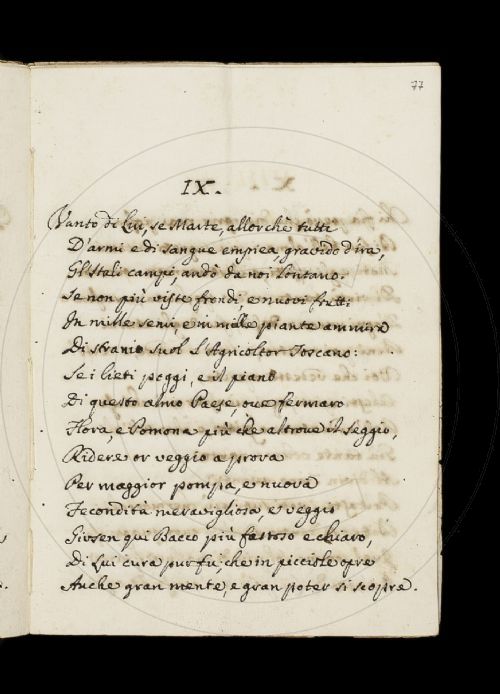 77
IX.
Vanto di Lui, se Marte, allorchè tutti
D'armi e di sangue empiea, gravido d'ira,
Gl'Itali campi, andò da noi lontano.
Se non più viste frondi, e nuovi frutti
In mille semi e in mille piante ammira
Di stranio suol l'Agricoltor Toscano:
Se i lieti poggi, e il piano
Di questo almo Paese, ove fermaro
Flora, e Pomona più che altrove il seggio,
Ridere or veggio a prova
Per maggior pompa, e nuova
Fecondità meravigliosa, e veggio
Girsen qui Bacco più fastoso e chiaro,
Di Lui cura pur fu, che in picciole opre
Anche gran mente, e gran poter si scopre.